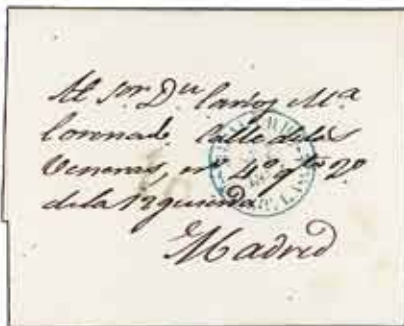 Al Sor. Dn. Carlos Ma.
Coronado. Calle de las
Veneras, no. 4o. qto. 2o.
de la izquierda
Madrid